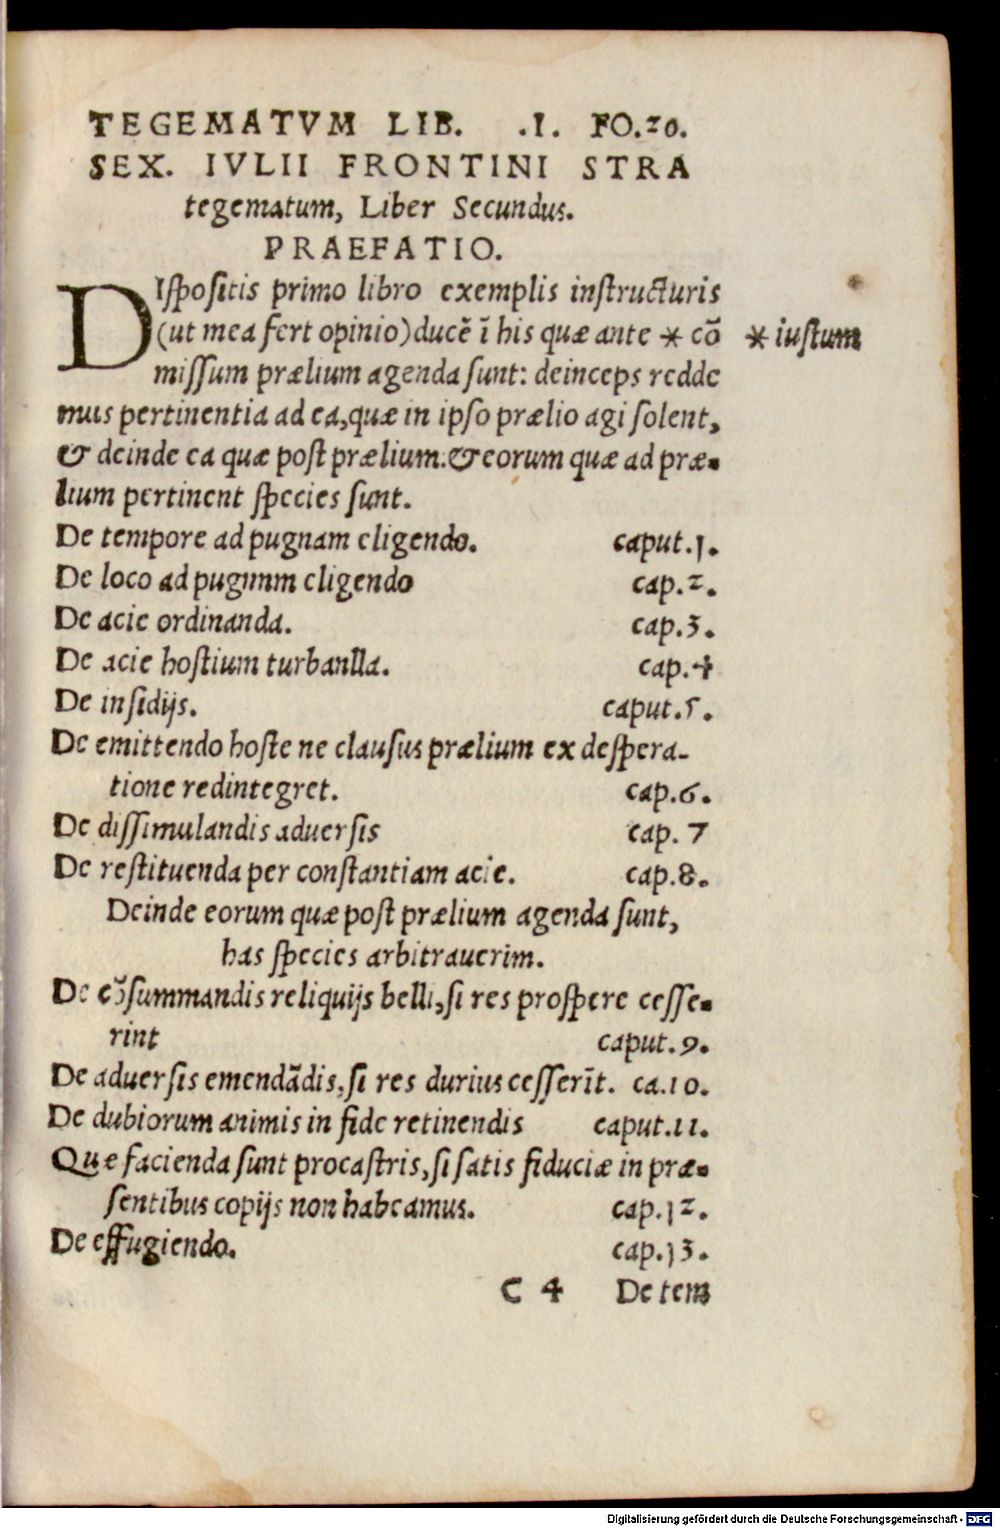 TEGEMATVM LIB. .I. FO.20.
SEX. IVLII FRONTINI STRA
tegematum, Liber Secundus.
PRAEFATIO.
DIſpoſitis primo libro exemplis inſtructuris
(ut mea fert opinio) ducē ī his quæ ante * cō * iuſtum
miſſum prælium agenda ſunt: deinceps redde
mus pertinentia ad ea, quæ in ipſo prælio agi ſolent,
& deinde ea quæ poſt prælium. & eorum quæ ad præ-
lium pertinent ſpecies ſunt.
De tempore ad pugnam eligendo. caput.1.
De loco ad pugnam eligendo cap.2.
De acie ordinanda. cap.3.
De acie hoſtium turbanda. cap.4
De inſidijs. caput.5.
De emittendo hoſte ne clauſus prælium ex deſpera-
tione redintegret. cap.6.
De diſſimulandis aduerſis cap. 7
De reſtituenda per conſtantiam acie. cap.8.
Deinde eorum quæ poſt prælium agenda ſunt,
has ſpecies arbitrauerim.
De cōſummandis reliquijs belli, ſi res proſpere ceſſe-
rint caput.9.
De aduerſis emendādis, ſi res durius ceſſerīt. ca.10.
De dubiorum animis in fide retinendis caput.11.
Quæ facienda ſunt procaſtris, ſi ſatis fiduciæ in præ-
ſentibus copijs non habeamus. cap.12.
De effugiendo. cap.13.
C 4 De tem
Digitalisierung gefördert durch die Deutsche Forschungsgemeinschaft - DFG